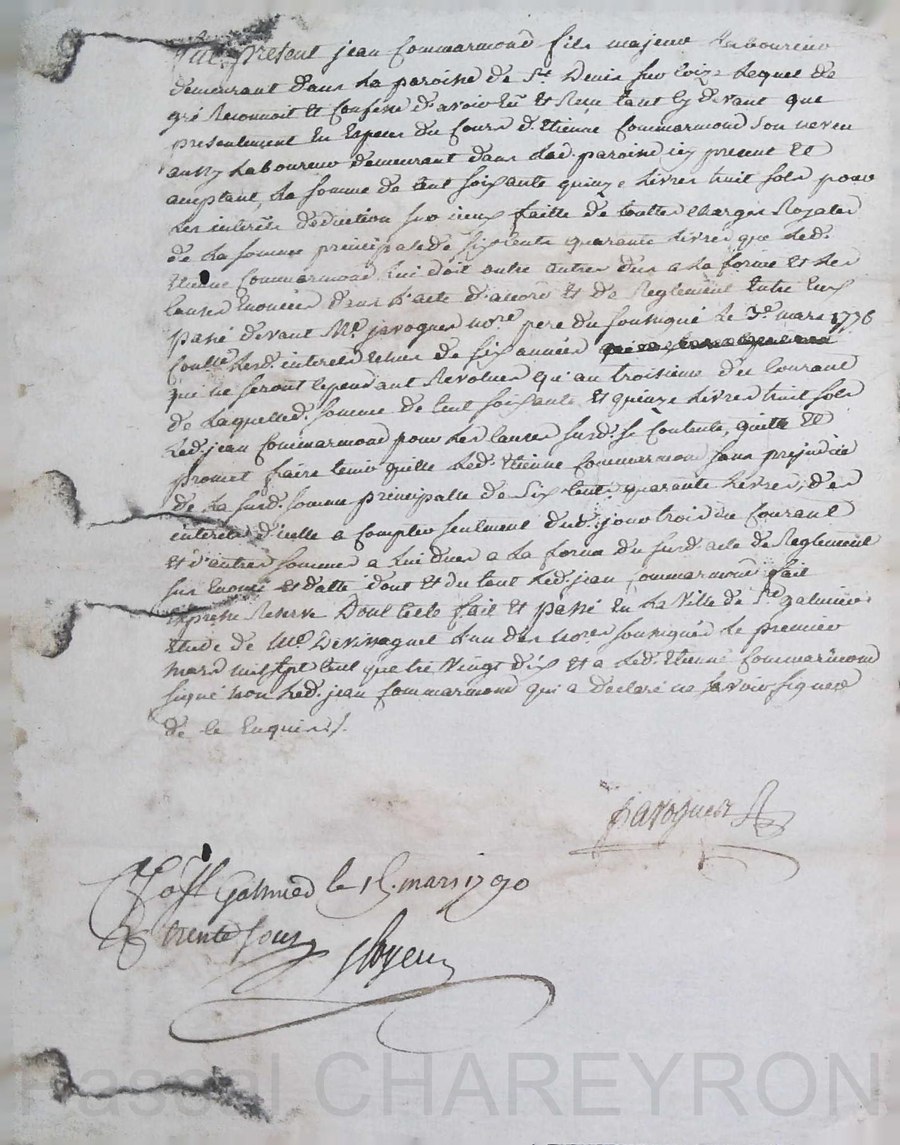 fut présent jean Commarmond fils majeur Laboureur
demeurant dans La paroisse de St Denis sur Coize Lequel de
gré Reconnoit et Confesse d'avoir Eu et Recu tant Cy devant que
presentement En Especes du Cours d'Etienne Commarmond Son neveu
aussy Laboureur demeurant dans Lad. paroisse icy present et
acceptant, La somme de Cent soixante quinze Livres huit sols pour
Les interêts déduction sur iceux faitte de touttes Charges Royales
de La somme principale de Six Cents quarante Livres que Led.
Etienne Commarmond Lui doit outre autres dus a La forme et Les
Causes Enoncées dans L'acte d'accord et de Reglement Entre Eux
passé devant Me. javogues nore. pere du soussigné Le 3e. mars 1776
Lesd. interets de six années
qui ne seront Cependant Revolues qu'au troisieme du Courant
de Laquelle d. somme de Cent soixante et quinze Livres huit sols
Led. jean Commarmond pour Les Causes susd. se Contente, quitte et
promet faire tenir quitte Led. Etienne Commarmond sans prejudice
de La susd. somme principalle de Six Cent quarante Livres, des
interets d'icelle a Compter seulement dud. jour trois du Courant
et d'autres sommes a Lui dues a La forme du susd. acte de Reglement
sus Enoncé et datté dont et du tout Led. jean Commarmond fait
Expresse Reserve Dont acte fait et passé En La Ville de St. galmier
Etude de Me. Devissaguet L'un des nores. soussignés Le premier
mars mil sept Cent quatre Vingt dix et a Led. Etienne Commarmond
signé non Led. jean Commarmond qui a declaré ne savoir signer
de ce Enquis
javogues
St Galmier le 15. mars 1790
trente sous
Pascal CHAREYRON